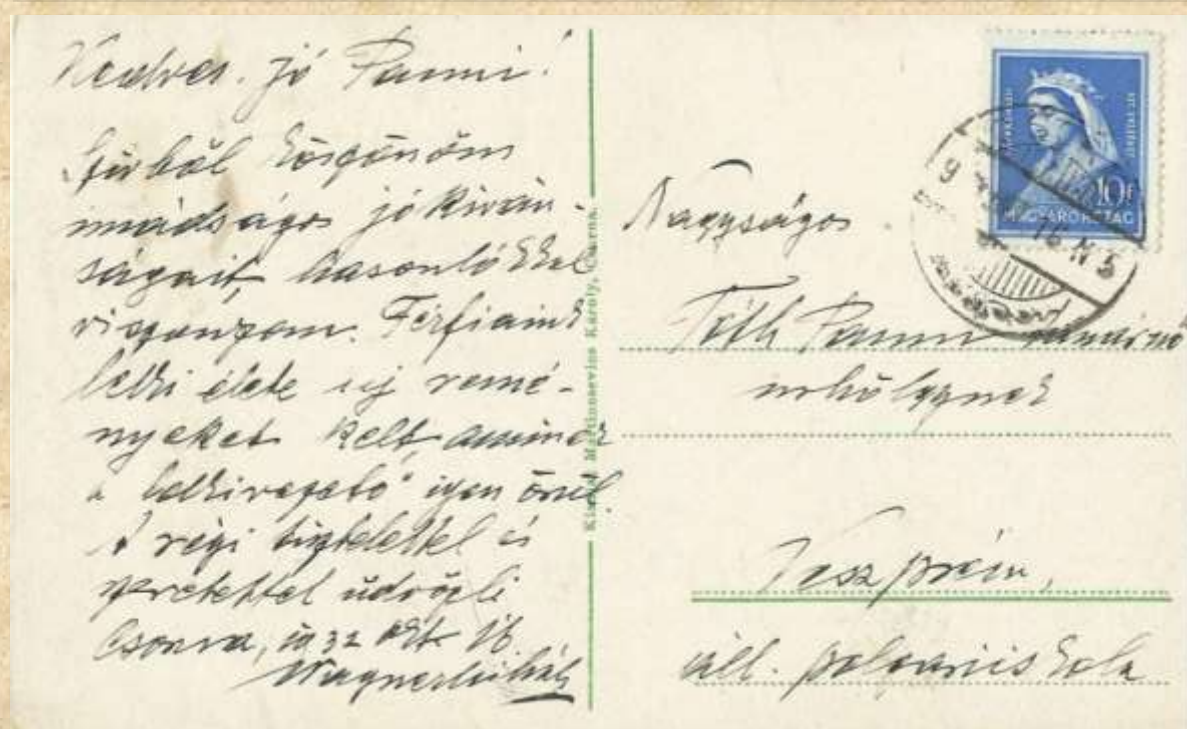 Kedves jó Panni!
Szívből köszönöm
imádságos jókiván-
ságait, hasonlókkal
viszonzom. Férfiaink
lelki élete uj remé-
nyeket kelt, aminek
a "lelkivezető" igen örül.
A régi tisztelettel és
szeretettel üdvözli
Csorna, 1932 okt. 16
Wagner Mihály
Kiadja Martincsevics Károly, Csorna.
Nagyságos
Tóth Panni tanárnő
urhölgynek
Veszprém,
áll. polgáriiskola
10f
MAGYARORSZÁG